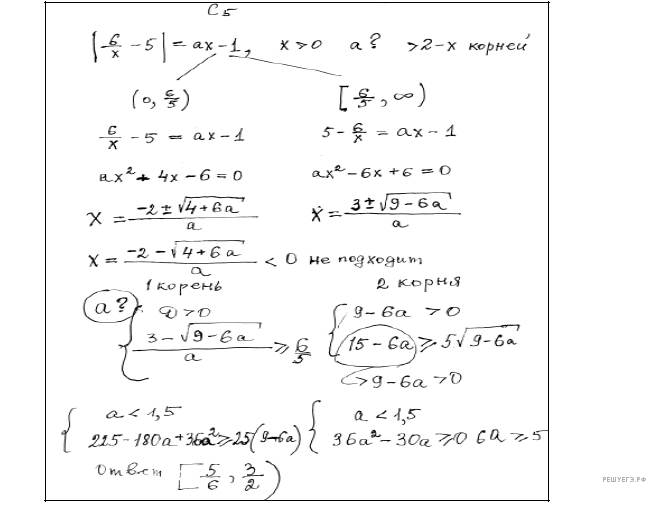 C5
|6/x - 5| = ax - 1, x > 0 a? > 2-х корней
(0, 6/5) [6/5, ∞)
6/x - 5 = ax - 1 5 - 6/x = ax - 1
ax² + 4x - 6 = 0 ax² - 6x + 6 = 0
x = (-2 ± √(4 + 6a))/a x = (3 ± √(9 - 6a))/a
x = (-2 - √(4 + 6a))/a < 0 не подходит
1 корень 2 корня
a? { D > 0 { 9 - 6a > 0
(3 - √(9 - 6a))/a ≥ 6/5 15 - 6a ≥ 5√(9 - 6a)
↪ 9 - 6a > 0
{ a < 1,5 { a < 1,5
225 - 180a + 36a² ≥ 25(9 - 6a) 36a² - 30a ≥ 0 6a ≥ 5
Ответ [5/6, 3/2)
РЕШУЕГЭ.РФ